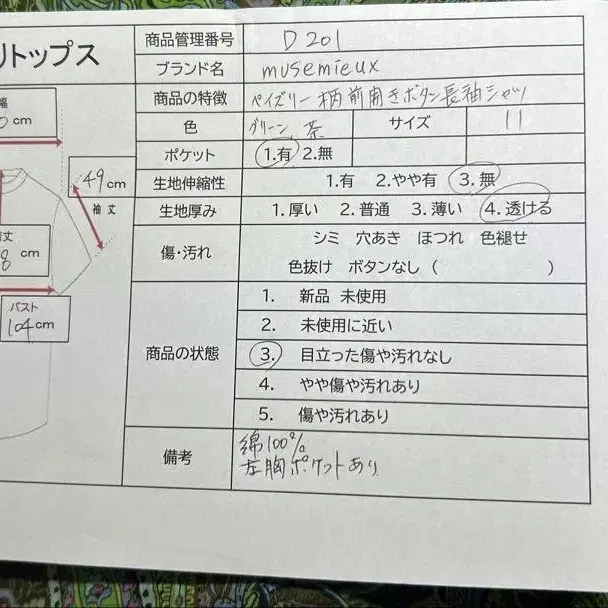 りトップス
商品管理番号 D 201
ブランド名 musemieux
商品の特徴 ペイズリー柄前開きボタン長袖シャツ
色 グリーン、茶 サイズ 11
ポケット 1.有 2.無
生地伸縮性 1.有 2.やや有 3.無
生地厚み 1.厚い 2.普通 3.薄い 4.透ける
傷・汚れ シミ 穴あき ほつれ 色褪せ
色抜け ボタンなし ( )
商品の状態 1. 新品 未使用
2. 未使用に近い
3. 目立った傷や汚れなし
4. やや傷や汚れあり
5. 傷や汚れあり
備考 綿100%
左胸ポケットあり
幅
0 cm
49 cm
袖丈
丈
8 cm
バスト
104 cm